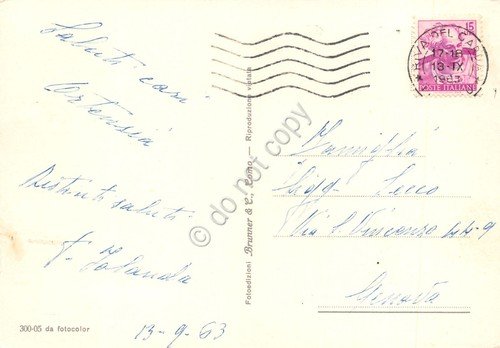 Saluti cari
Ortensia
Distinti saluti
F. Iolanda
13-9-63
300-05 da fotocolor
Fotoedizioni Brunner & C., Como - Riproduzione vietata
© do not copy
RIVA DEL GARDA
17-18
18-IX
1963
15
POSTE ITALIANE
Famiglia
Sigg. Secco
Via S. Vincenzo 44-9
Genova